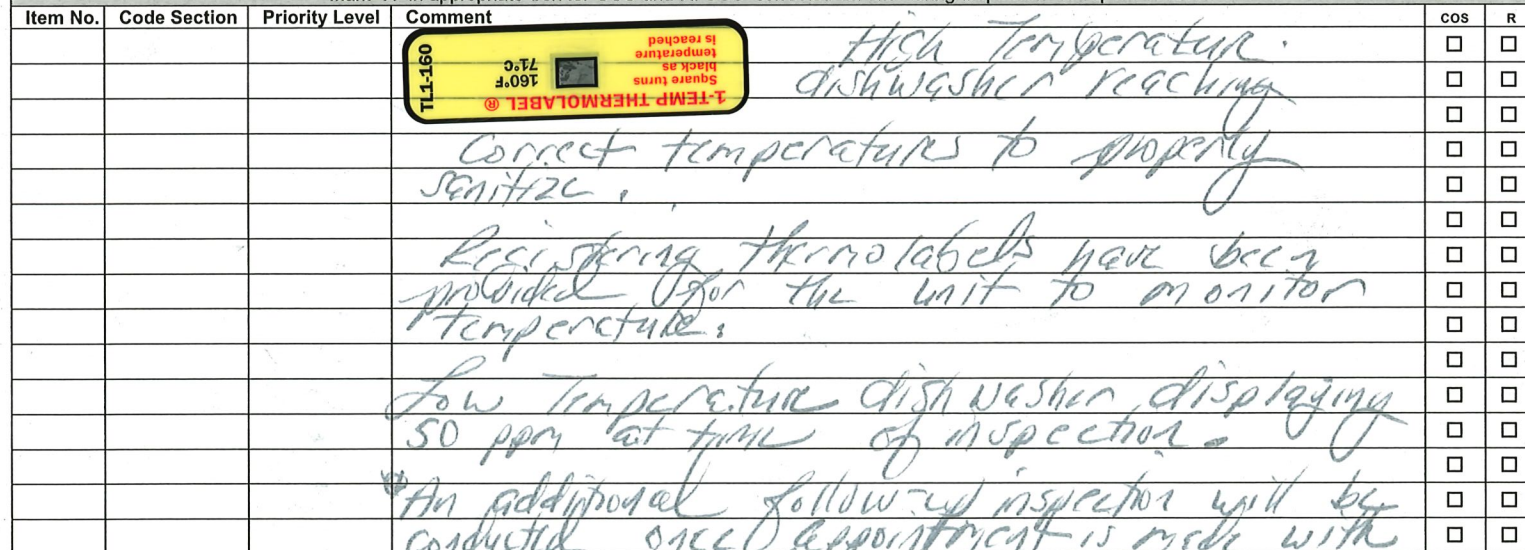 Item No. Code Section Priority Level Comment COS R
TL1-160
1-TEMP THERMOLABEL ®
Square turns
black as
temperature
is reached
160°F
71°C
High Temperature.
dishwasher reaching
Correct temperatures to properly
sanitize.
Registering thermolabels have been
provided for the unit to monitor
temperature.
Low Temperature dishwasher displaying
50 ppm at time of inspection.
*An additional follow-up inspection will be
conducted once appointment is made with